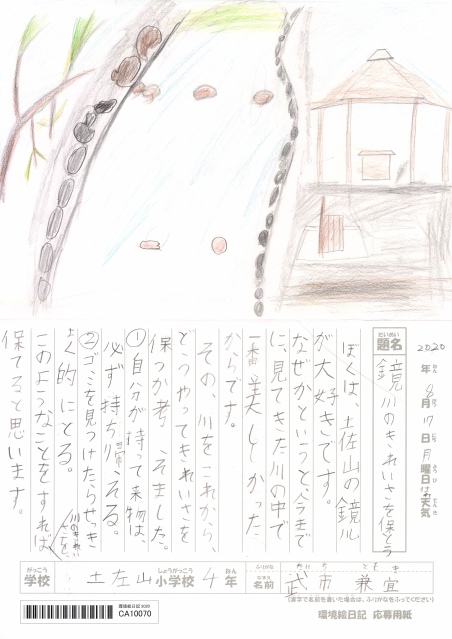 2020年8月17日月曜日
天気
だいめい
題名
鏡川のきれいさを保とう
ぼくは、土佐山の鏡川
が大好きです。
なぜかというと、今まで
に、見てきた川の中で
一番美しかった
からです。
その、川をこれから、
どうやってきれいさを
保つか考えそました。
①自分が持って来物は、
必ず持ち帰える。
②ゴミを見つけたらせっき
ょく的にとる。
このようなことをすれば、
川のきれいさを
保てると思います。
がっこう
学校
土左山
しょうがっこう
小学校
4
ねん
年
ふりがな
なまえ
名前
武市兼宜
(漢字で名前を書いた場合は、ふりがなをふってください)
環境絵日記 2020
CA10070
環境絵日記 応募用紙